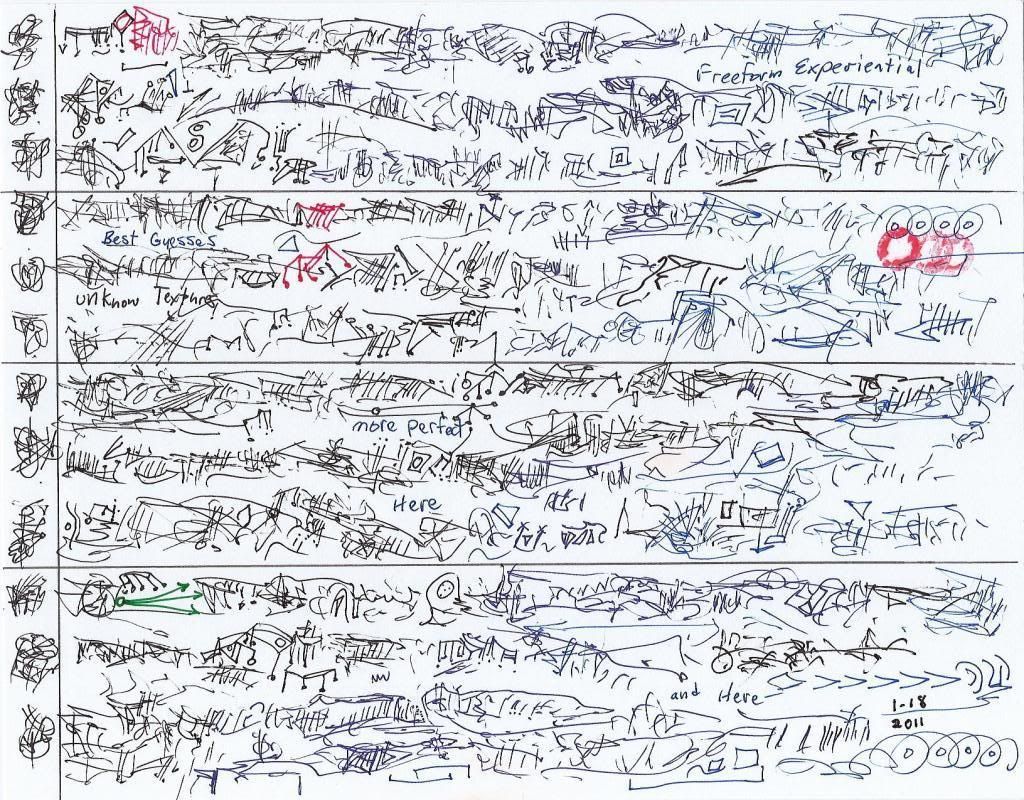 Freeform Experiential
Best Guesses
unknow Textures
more perfect
Here
and Here
1-18
2011